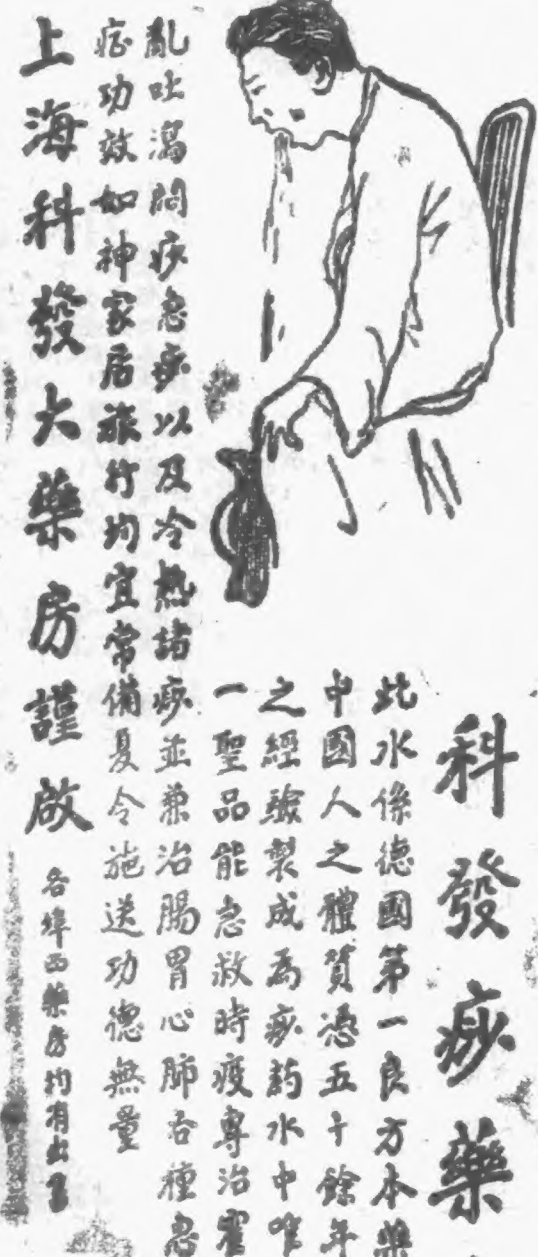 科發痧藥
此水係德國第一良方本藥
中國人之體質憑五十餘年
之經驗製成為痧葯水中唯
一聖品能急救時疫專治霍
亂吐瀉悶痧急痧以及冷熱諸痧並兼治腸胃心肺各種急
症功效如神家居旅行均宜常備夏令施送功德無量
上海科發大藥房謹啟
各埠西藥房均有出售